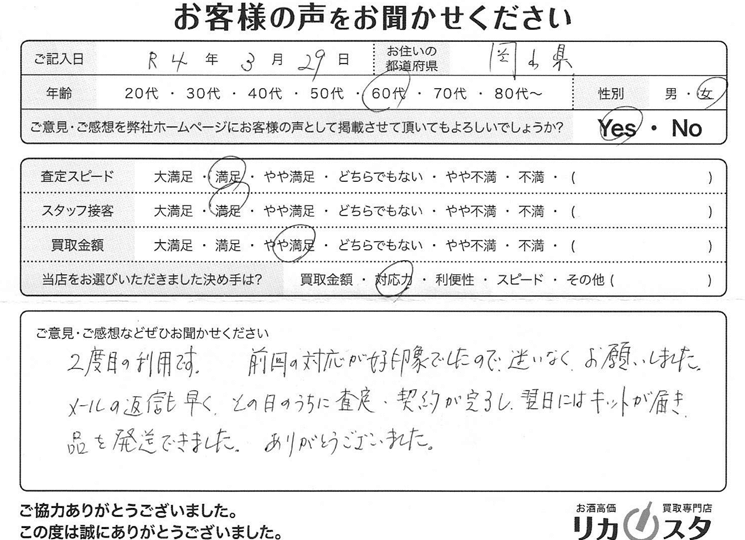 お客様の声をお聞かせください
ご記入日 R4 年 3 月 29 日 お住いの都道府県 岡山県
年齢 20代 ・ 30代 ・ 40代 ・ 50代 ・ 60代 ・ 70代 ・ 80代〜 性別 男 ・ 女
ご意見・ご感想を弊社ホームページにお客様の声として掲載させて頂いてもよろしいでしょうか? Yes ・ No
査定スピード 大満足 ・ 満足 ・ やや満足 ・ どちらでもない ・ やや不満 ・ 不満 ・ ( )
スタッフ接客 大満足 ・ 満足 ・ やや満足 ・ どちらでもない ・ やや不満 ・ 不満 ・ ( )
買取金額 大満足 ・ 満足 ・ やや満足 ・ どちらでもない ・ やや不満 ・ 不満 ・ ( )
当店をお選びいただきました決め手は? 買取金額 ・ 対応力 ・ 利便性 ・ スピード ・ その他 ( )
ご意見・ご感想などぜひお聞かせください
2度目の利用です。 前回の対応が好印象でしたので、迷いなく、お願いしました。
メールの返信も早く、その日のうちに査定、契約が完了し、翌日にはキットが届き、
品を発送できました。 ありがとうございました。
ご協力ありがとうございました。
この度は誠にありがとうございました。
お酒高価 買取専門店
リカスタ